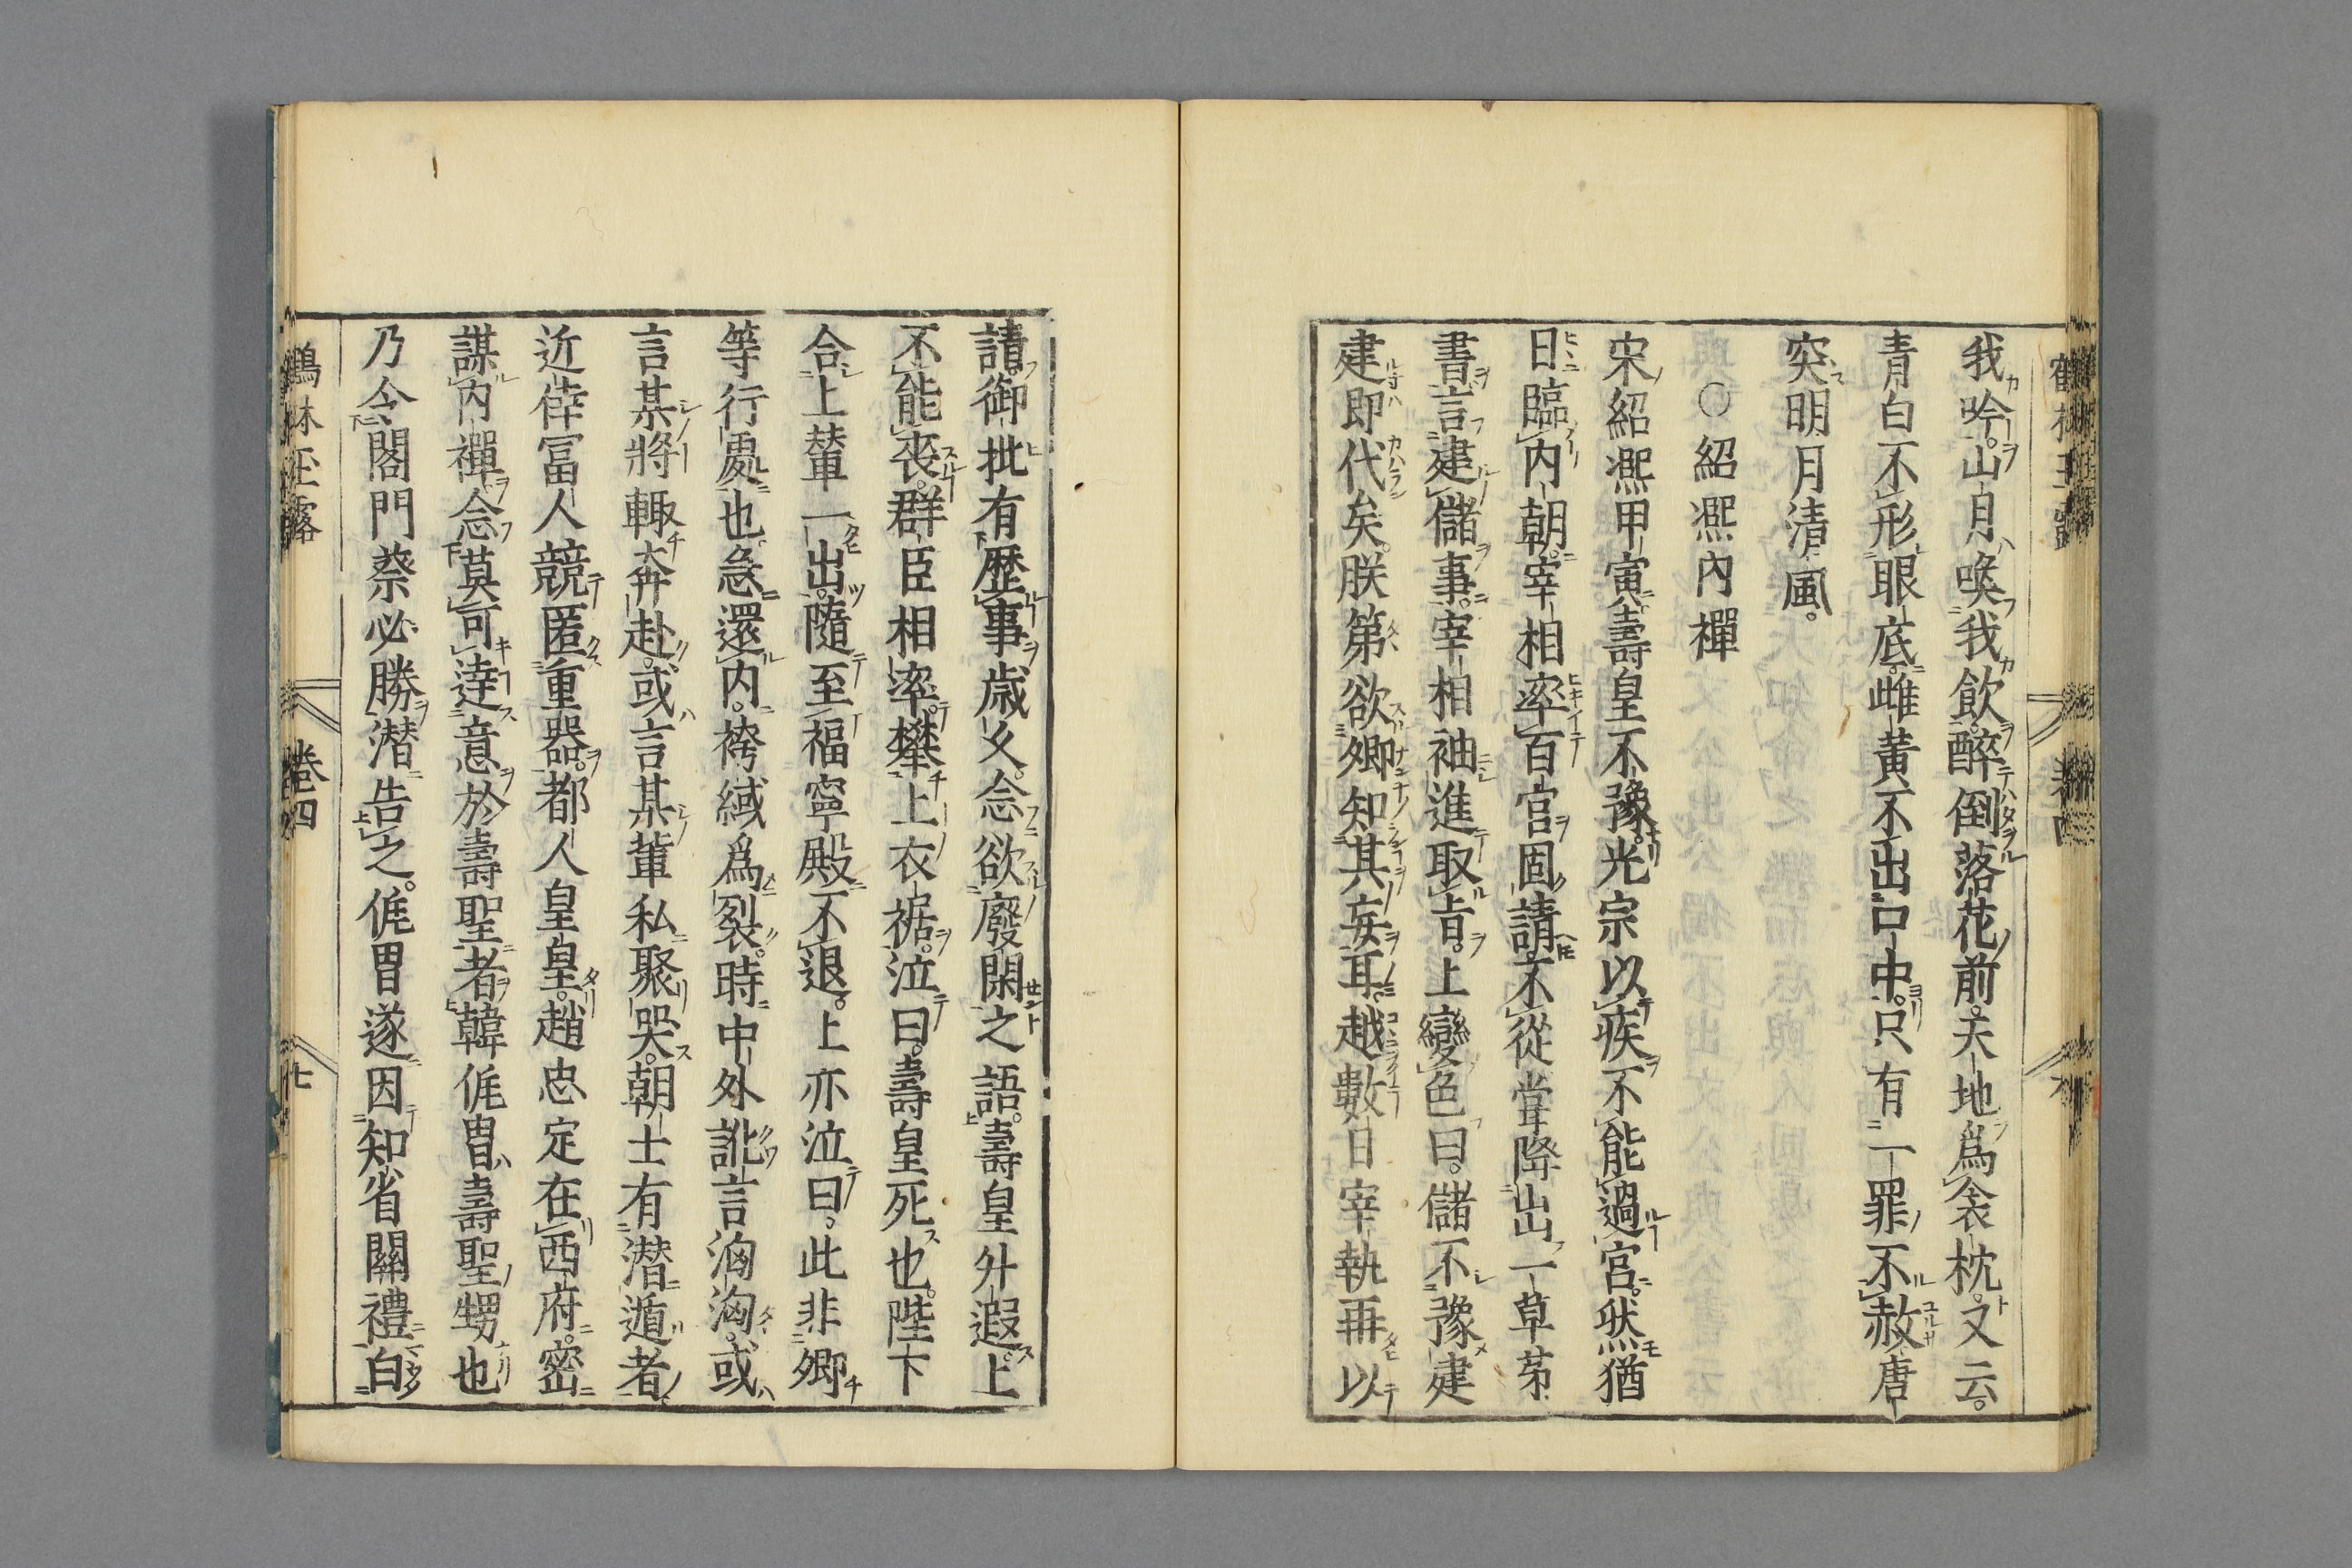 我吟山月喚我飲醉倒落花前天地爲衾枕又云
青白不形眼底雌黃不出口中只有一罪不赦唐
突明月清風
○紹凞內禪
宋紹凞甲寅壽皇不豫光宗以疾不能過宮然猶
日臨內朝宰相率百官固請不從嘗降出一草茅
書言建儲事宰相袖進取旨上變色曰儲不豫建
建即代矣朕第欲卿知其妄耳越數日宰執再以
請御批有歷事歲久念欲廢閑之語壽皇外遐上
不能喪群臣相率攀上衣裾泣曰壽皇死也陛下
合上輦一出隨至福寧殿不退上亦泣曰此非卿
等行處也急還內袴緎爲裂時中外訛言洶洶或
言某將輙奔赴或言某輩私聚哭朝士有潛遁者
近倖冨人競匿重器都人皇皇趙忠定在西府密
謀內禪念莫可達意於壽聖者韓侂胄壽聖甥也
乃令閤門蔡必勝潛告之侂胄遂因知省關禮白
鶴林玉露
卷四
七